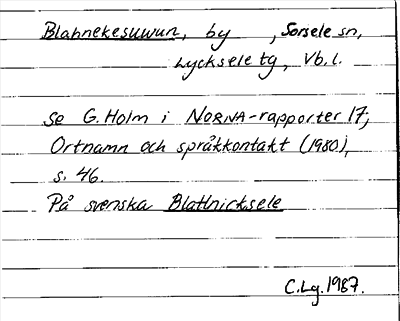 Blahnekesuwun, by , Sorsele sn,
Lycksele tg, Vb. l.
se G. Holm i NORNA-rapporter 17;
Ortnamn och språkkontakt (1980),
s. 46.
På svenska Blattnicksele
C. Lg. 1987.